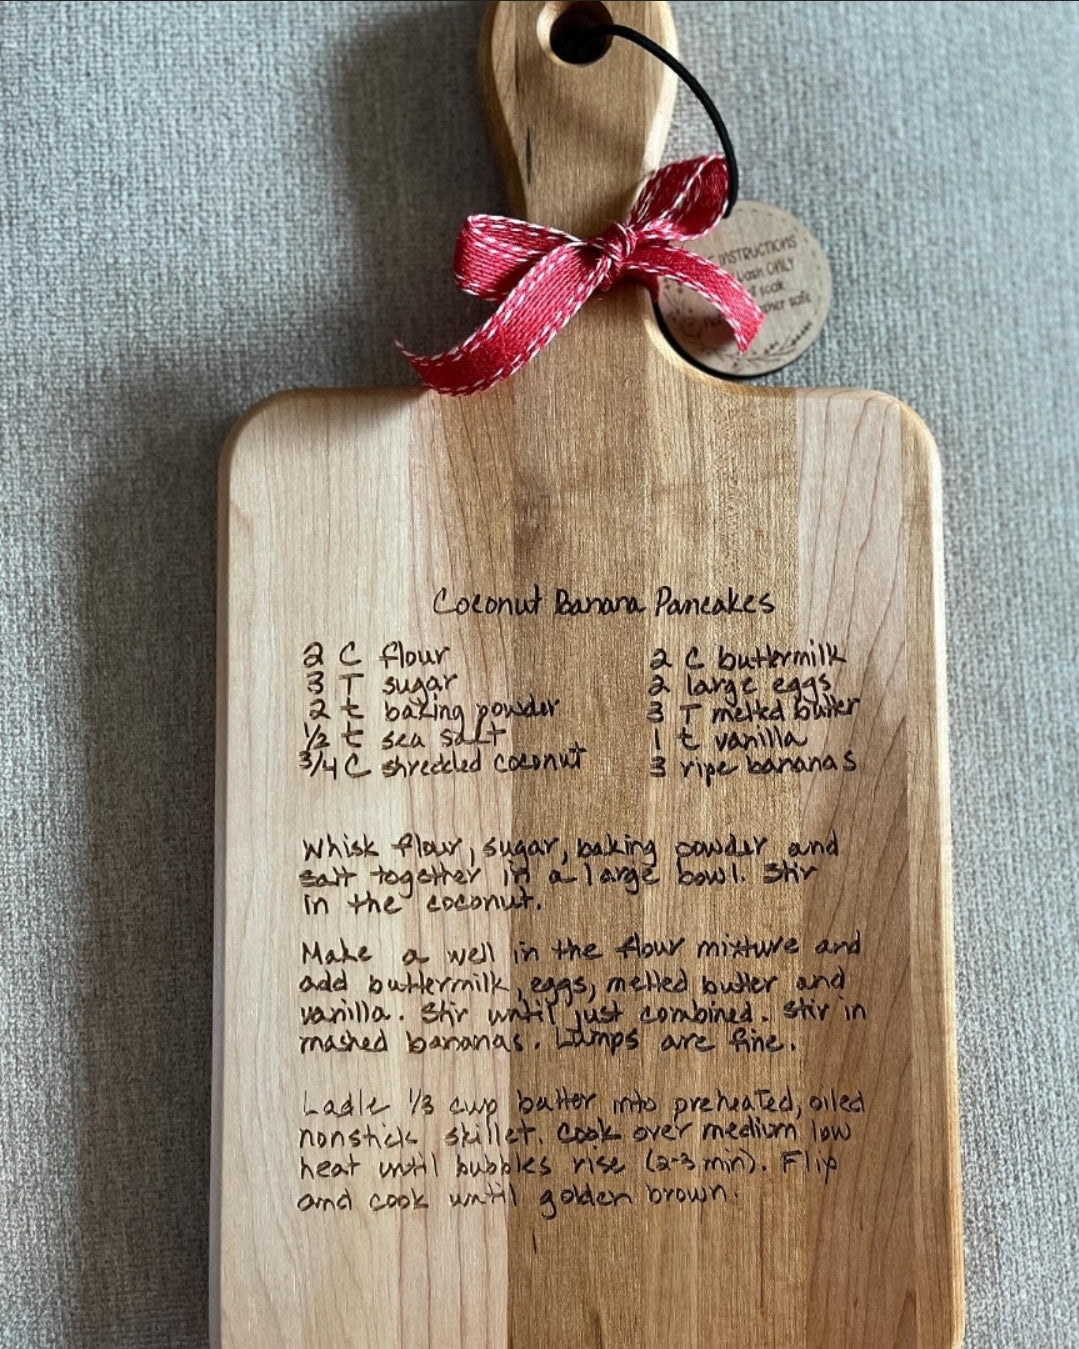 INSTRUCTIONS
wash ONLY
soak
safe
Coconut Banana Pancakes
2 C flour
3 T sugar
2 t baking powder
1/2 t sea salt
3/4 C shredded coconut
2 C buttermilk
2 large eggs
3 T melted butter
1 t vanilla
3 ripe bananas
Whisk flour, sugar, baking powder and
salt together in a large bowl. Stir
in the coconut.
Make a well in the flour mixture and
add buttermilk, eggs, melted butter and
vanilla. Stir until just combined. Stir in
mashed bananas. Lumps are fine.
Ladle 1/3 cup batter into preheated, oiled
nonstick skillet. Cook over medium low
heat until bubbles rise (2-3 min). Flip
and cook until golden brown.